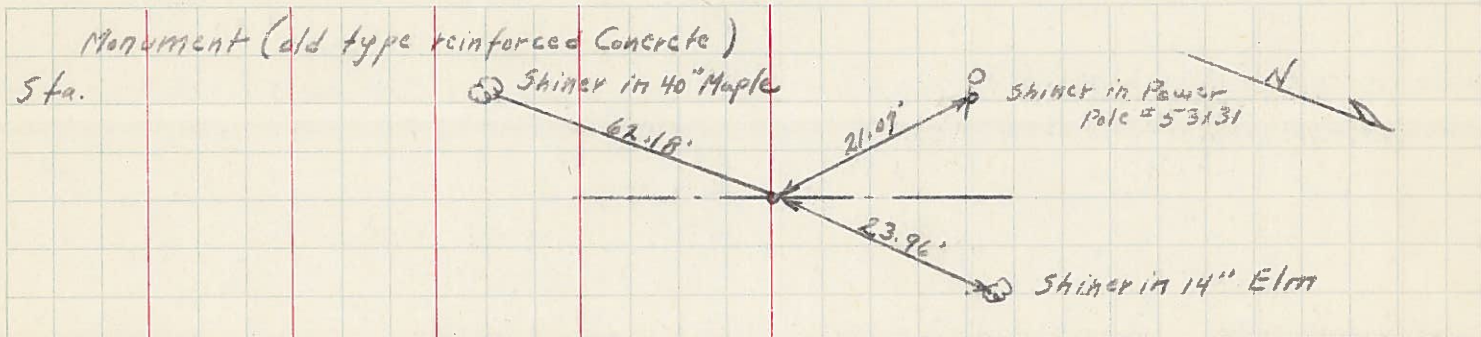 Monument (old type reinforced Concrete)
Sta.
Shiner in 40" Maple
Shiner in Power
Pole # 53131
N
62.18'
21.07'
23.96'
Shiner in 14" Elm